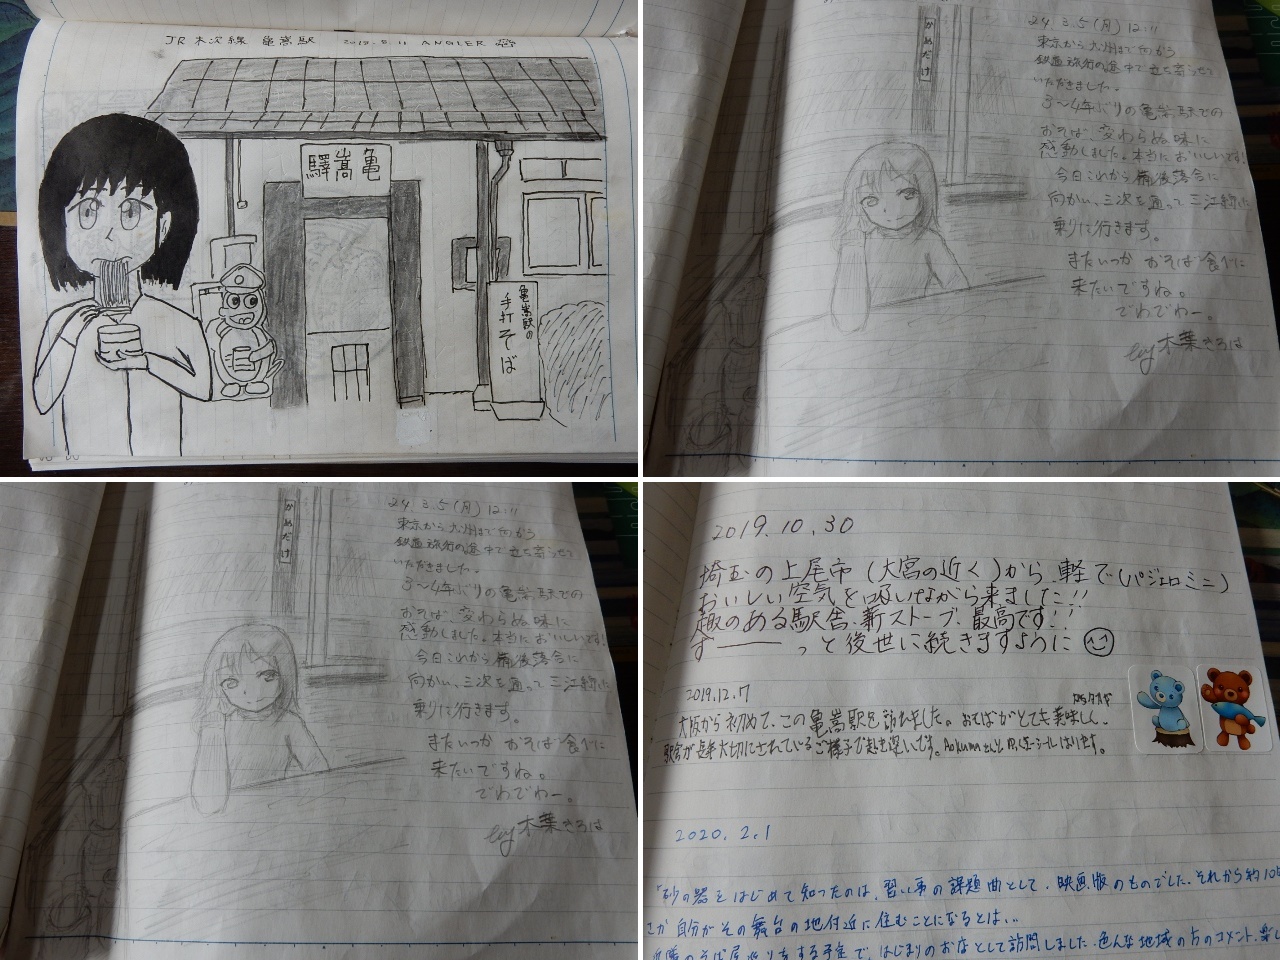 JR木次線 亀嵩駅 2019.8.11 ANGLER
驛嵩亀
亀嵩駅の
手打そば
かめだけ
24.3.5(月) 12:11
東京から九州まで向かう
鉄道旅行の途中で立ち寄らせて
いただきました。
3〜4年ぶりの亀嵩駅での
おそば、変わらぬ味に
感動しました。本当においしいです!
今日これから備後落合に
向かい、三次を通って三江線に
乗りに行きます。
またいつか おそば食べに
来たいですね。
でわでわー。
by 木葉さろは
かめだけ
24.3.5(月) 12:11
東京から九州まで向かう
鉄道旅行の途中で立ち寄らせて
いただきました。
3〜4年ぶりの亀嵩駅での
おそば、変わらぬ味に
感動しました。本当においしいです!
今日これから備後落合に
向かい、三次を通って三江線に
乗りに行きます。
またいつか おそば食べに
来たいですね。
でわでわー。
by 木葉さろは
2019.10.30
埼玉の上尾市(大宮の近く)から、軽で(パジェロミニ)
おいしい空気を吸いながら来ました!!
趣のある駅舎、薪ストーブ、最高です!!
ず——っと後世に続きますように
2019.12.7
大阪から初めて、この亀嵩駅を訪れました。おそばがとても美味しく、
駅舎が大切にされているご様子で
2020.2.1
"砂の器"をはじめて知ったのは、習い事の課題曲として、映画版のものでした。それから約10
自分がその舞台の地付近に住むことになるとは…
そば屋巡りをする予定で、はじまりのお店として訪問しました。色んな地域の方のコメント、楽し